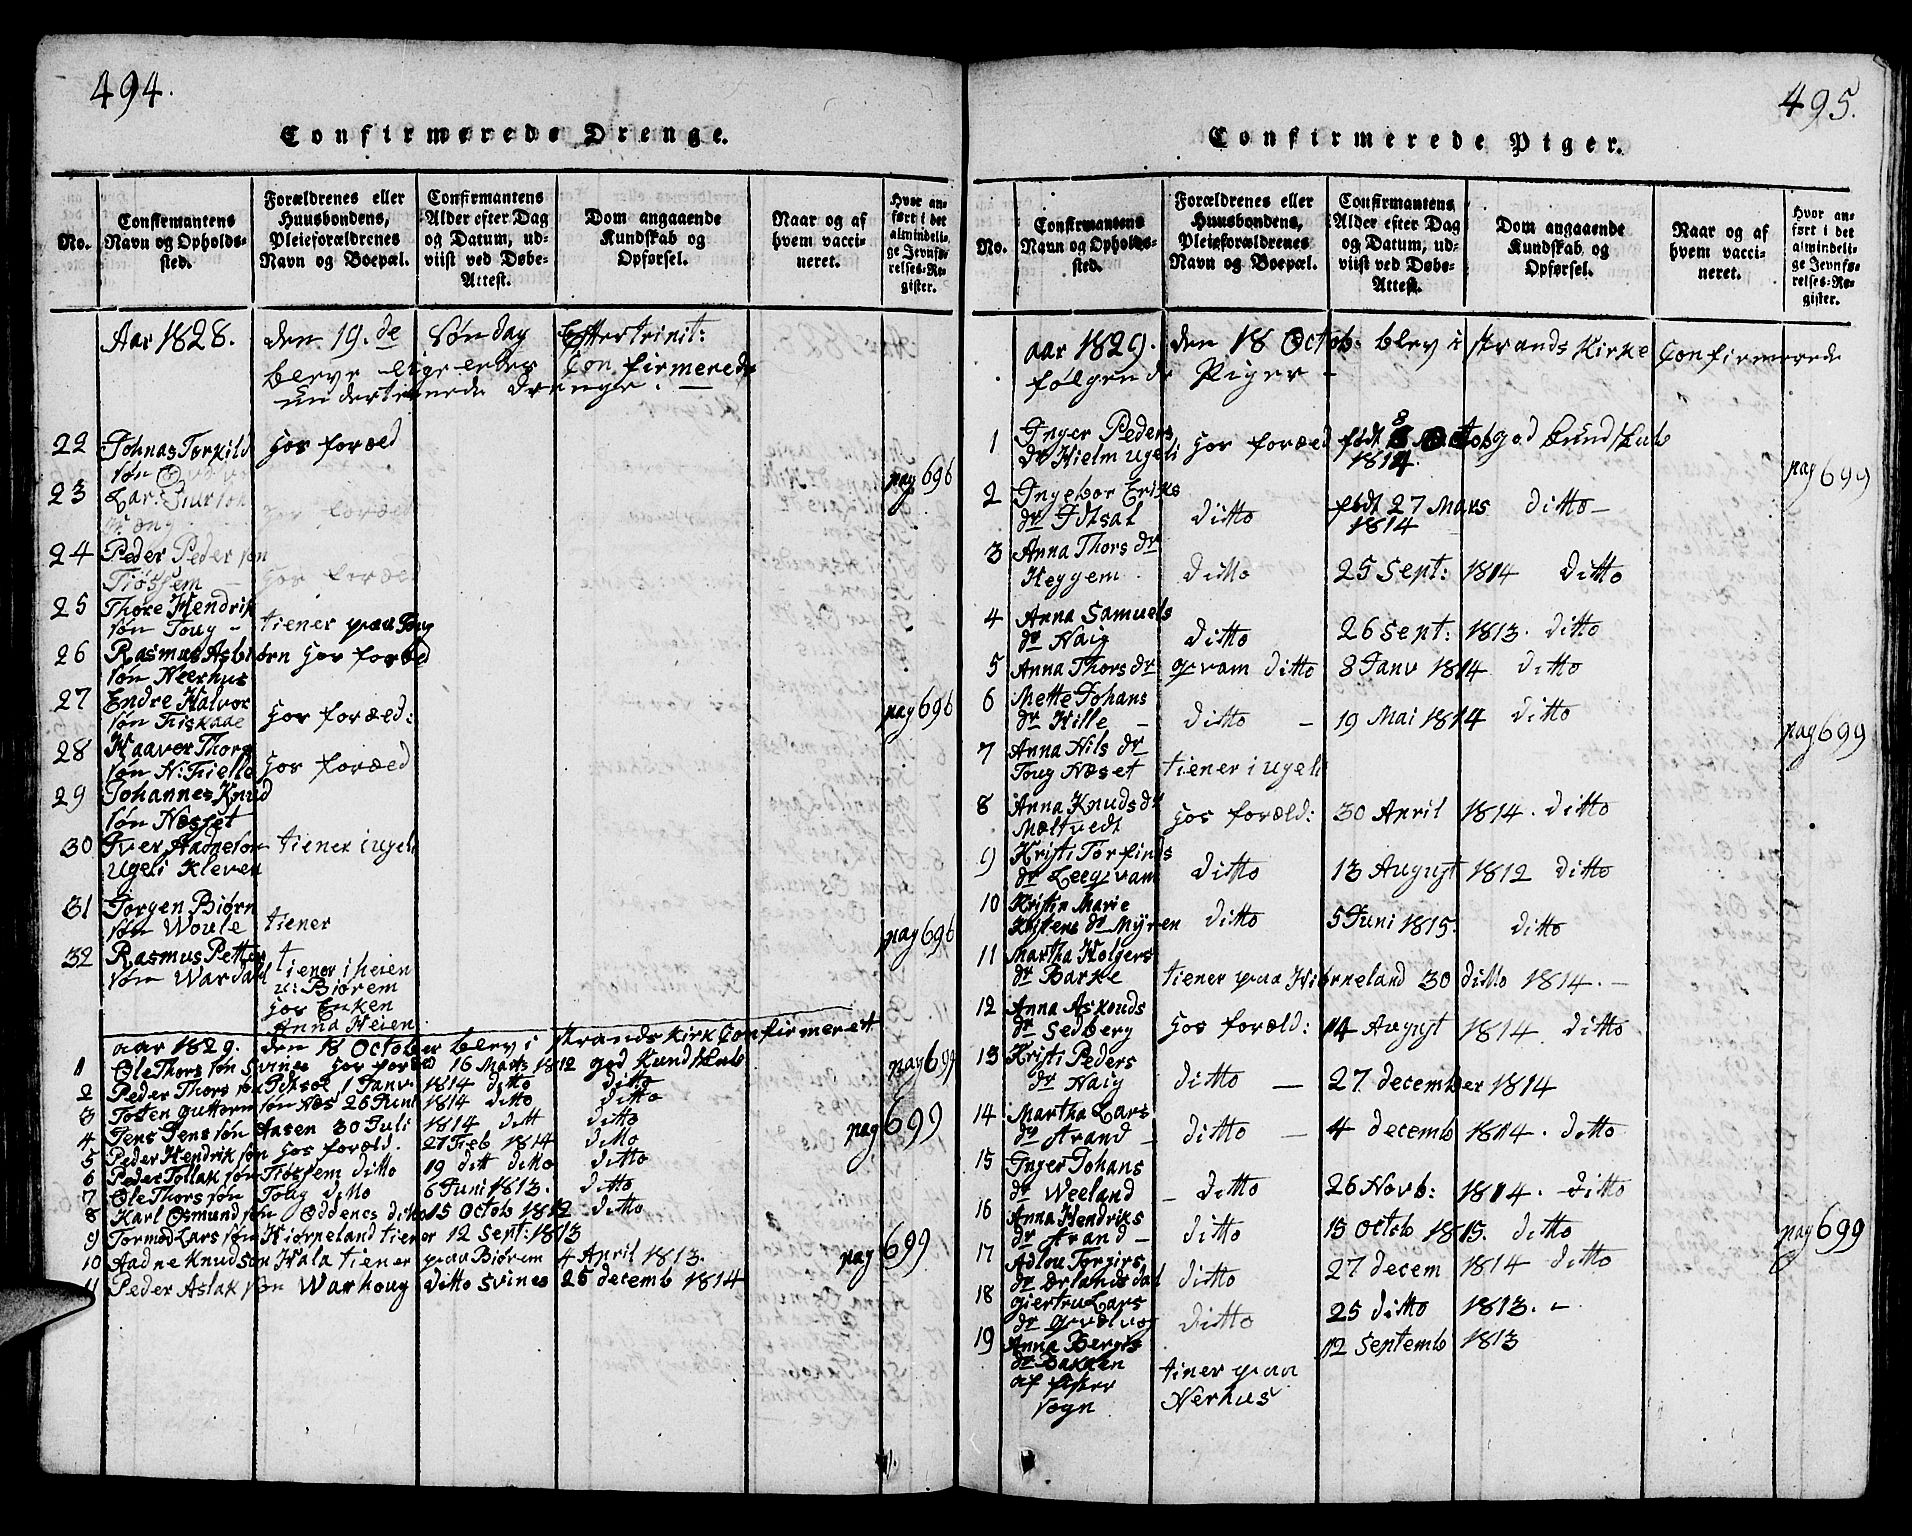 494.
Confirmerede Drenge.
No.
Confirmantens Navn og Opholds-sted.
Forældrenes eller Huusbondens, Pleieforældrenes Navn og Boepæl.
Confirmantens Alder efter Dag og Datum, ud-viist ved Døbe-Attest.
Dom angaaende Kundskab og Opførsel.
Naar og af hvem vacci-neret.
Hvor an-ført i det almindeli-ge Jevnfø-relses-Re-gister.
Aar 1828. den 19.de Søndag Efter trinit:
bleve ligeledes Confirmerede
undertegnede Drenge. —
22 Johnas Torkild hos foræld
søn
23 Lar. Siurson hos foræld
pag 696
24 Peder Pedersøn
Tiøssem — hos foræld
25 Thore Hendrik
søn Toug — tiener paa Toug
26 Rasmus Asbiørn hos foræld
søn Neerhus
27 Endre Halvor
søn Fiskaae hos foræld:
pag 696
28 Haaver Thors
søn N: Fielle hos foræld
29 Johannes Knud
søn Næsset
30 Iver Aadneson tiener i ugeli
Ugeli Kleven
31 Jorgen Biørn
søn Woule tiener
pag 696
32 Rasmus Petter
søn Wardahl tiener i heien
u: Biørem
hos Enken
Anna Heien
aar 1829. den 18 October blev i Strands Kirk Confirmeret
1 Ole Thors søn Svines hos foræld 16 Marts 1812 god Kundskab
pag 699
2 Peder Thors søn Idtsøe 1 Janv 1814 ditto ditto
3 Tosten guttorm søn Næs 26 Juni 1814 ditto ditto
4 Jens Jens søn Aasen 30 Juli 1814 ditt ditto
5 Peder Hendrik søn hos foræld. 27 Feb 1814 ditto
pag 699
6 Peder Tollak søn Tiøssem ditto 19 ditt ditto ditto
7 Ole Thors søn Toug ditto 6 Juni 1813. ditto
8 Karl Osmund søn Oddenes ditto 15 Octob 1812 ditto
9 Tormod Lars søn Hiørneland tiener 12 Sept: 1813
10 Aadne Knudsøn Hala tiener paa Biørem 4 April 1813.
pag 699
11 Peder Aslak søn Warhoug ditto Svines 25 decemb 1814
495.
Confirmerede Piger.
No.
Confirmantens Navn og Opholds-sted.
Forældrenes eller Huusbondens, Pleieforældrenes Navn og Boepæl.
Confirmantens Alder efter Dag og Datum, ud-viist ved Døbe-Attest.
Dom angaaende Kundskab og Opførsel.
Naar og af hvem vacci-neret.
Hvor an-ført i det almindeli-ge Jevnfø-relses-Re-gister.
aar 1829. den 18 Octob: blev i Strands Kirke Confirmerede
følgende Piger -
1 Inger Peders
dr Hielm ugeli hos foræld født 8 Octob god kundskab
1814.
pag 699
2 Ingebor Eriks
dr Idtsal ditto født 27 Mars ditto —
1814
3 Anna Thors dr
Heggem. ditto 25 Sept: 1814 ditto
4 Anna Samuels
dr Haig ditto 26 sept: 1813. ditto
5 Anna Thors dr qvam ditto 8 Janv 1814 ditto
6 Mette Johans
dr Hille — ditto — 19 Mai 1814 ditto
pag 699
7 Anna Nils dr
Toug Næset tiener i ugeli
8 Anna Knuds dr
Mæltvedt hos foræld: 30 April 1814. ditto
9 Kristi Torfinds
dr Leeqvam ditto 13 August 1812 ditto
10 Kristin Marie
Kistens dr Myren ditto 5 Juni 1815. ditto
11 Martha Holgers
dr Barke tiener paa Hiørneland 30 ditto 1814. —
12 Anna Askouds
dr Sedberg hos foræld: 14 August 1814. ditto
13 Kristi Peders
dr Haig ditto — 27 december 1814
14 Martha Lars
dr Strand — ditto — 4 decemb 1814. ditto
15 Inger Johans
dr Weeland — ditto 26 Novb: 1814. — ditto
16 Anna Hendriks
dr Strand — ditto 15 Octob 1815. ditto
pag 699
17 Adlou Torgirs
dr Ørlandsdal ditto 27 decem 1814 ditto
18 giertru Lars
dr qvælvog ditto 25 ditto 1813. -
19 Anna Bergts
dr Bakken tiner paa 12 Septemb 1813
af fister Nerhus
sogn